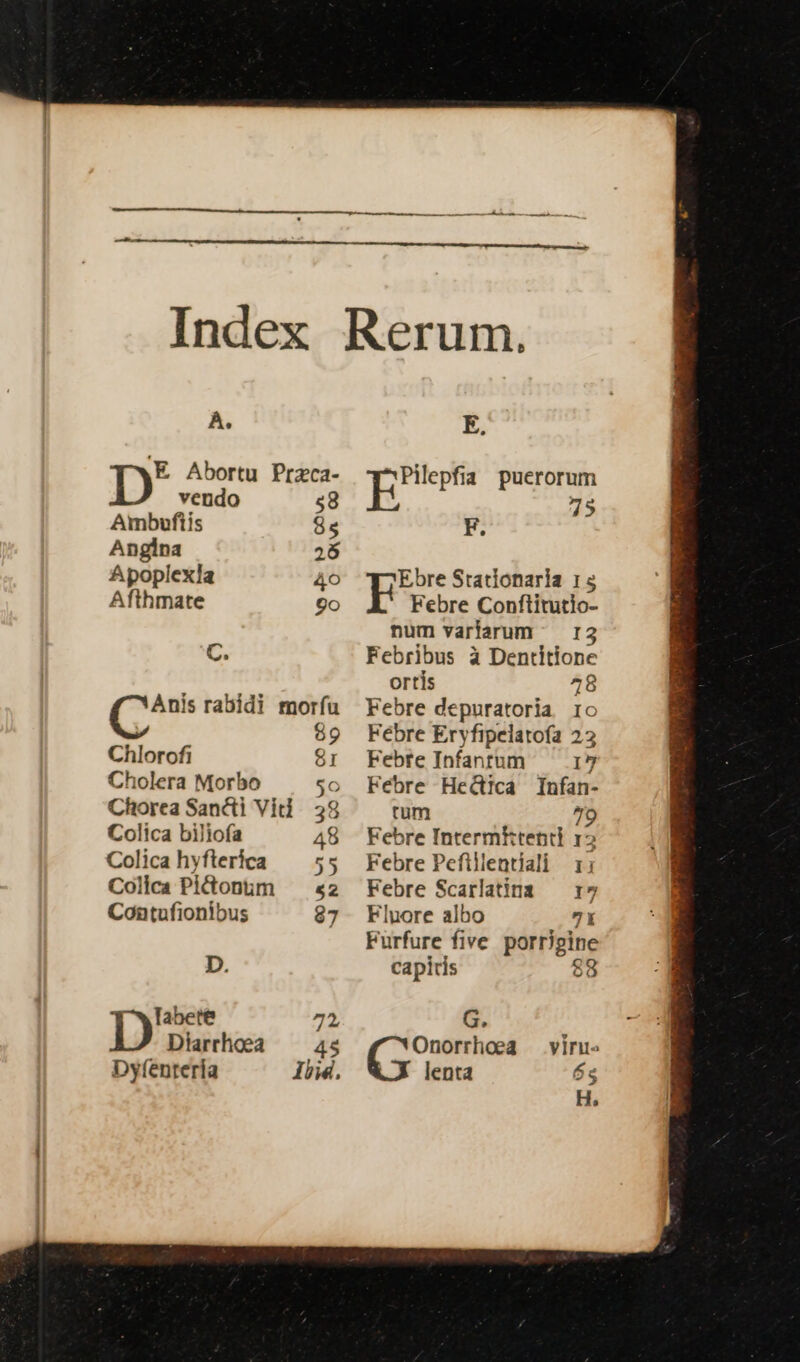 Index Rerum.
A.
DE Abortu Præca-
vendo 58
Ambuſtis 85
Angina 26
Apoplexia 40
Aſthmate 90
C.
CAnis rabidi morſu
89
Chloroſi 81
Cholera Morbo 50
Chorea Sancti Viti 38
Colica bilioſa 48
Colica hyſterica 55
Colica Pictonum 52
Contuſionibus 87
D.
DIabete 72
Diarrhœa 45
Dyſenteria Ibid.
E.
EPilepſia puerorum
75
F.
FEbre Stationaria 15
Febre Conſtitutio-
num variarum 13
Febribus à Dentitione
ortis 78
Febre depuratoria 10
Febre Eryſipelatoſa 23
Febre Infantum 17
Febre Hectica Infan-
tum 79
Febre Intermittenti 13
Febre Peſtilentiali 11
Febre Scarlatina 17
Fluore albo 71
Furfure ſive porrigine
capitis 88
G.
GOnorrhœa viru-
lenta 65
H.